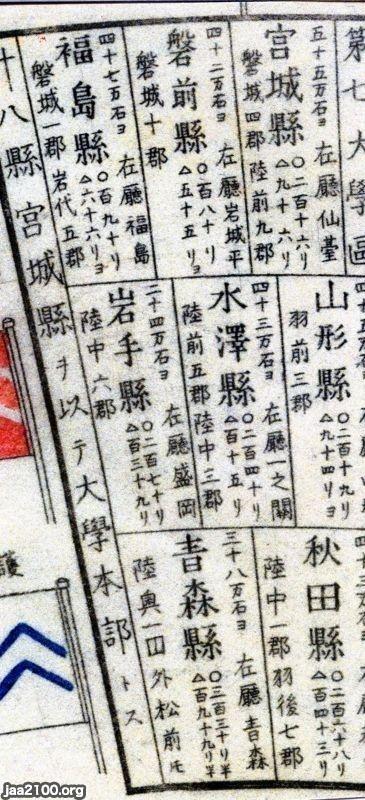 第七大學區
五十五万石ヨ 在廳仙臺
宮城縣
〇二百十六リ
△九十六リ
磐城四郡陸前九郡
四十二万石ヨ 在廳岩城平
磐前縣
〇百八十リ
△五十五リヨ
磐城十郡
四十七万石ヨ 在廳福島
福島縣
〇百九十リ
△六十六リヨ
磐城一郡岩代五郡
山形縣
〇二百十九リ
△九十四リヨ
羽前三郡
四十三万石ヨ 在廳一之關
水澤縣
〇二百四十リ
△百十五リ
陸前五郡陸中三郡
二十四万石ヨ 在廳盛岡
岩手縣
〇二百七十リ
△百三十九リ
陸中六郡
秋田縣
〇二百六十八リ
△百四十三リ
陸中一郡羽後七郡
三十八万石ヨ 在廳青森
青森縣
〇三百三十リ半
△百九十九リ半
陸奥一囙外松前モ
十八縣宮城縣ヲ以テ大學本部トス
護
jaa2100.org